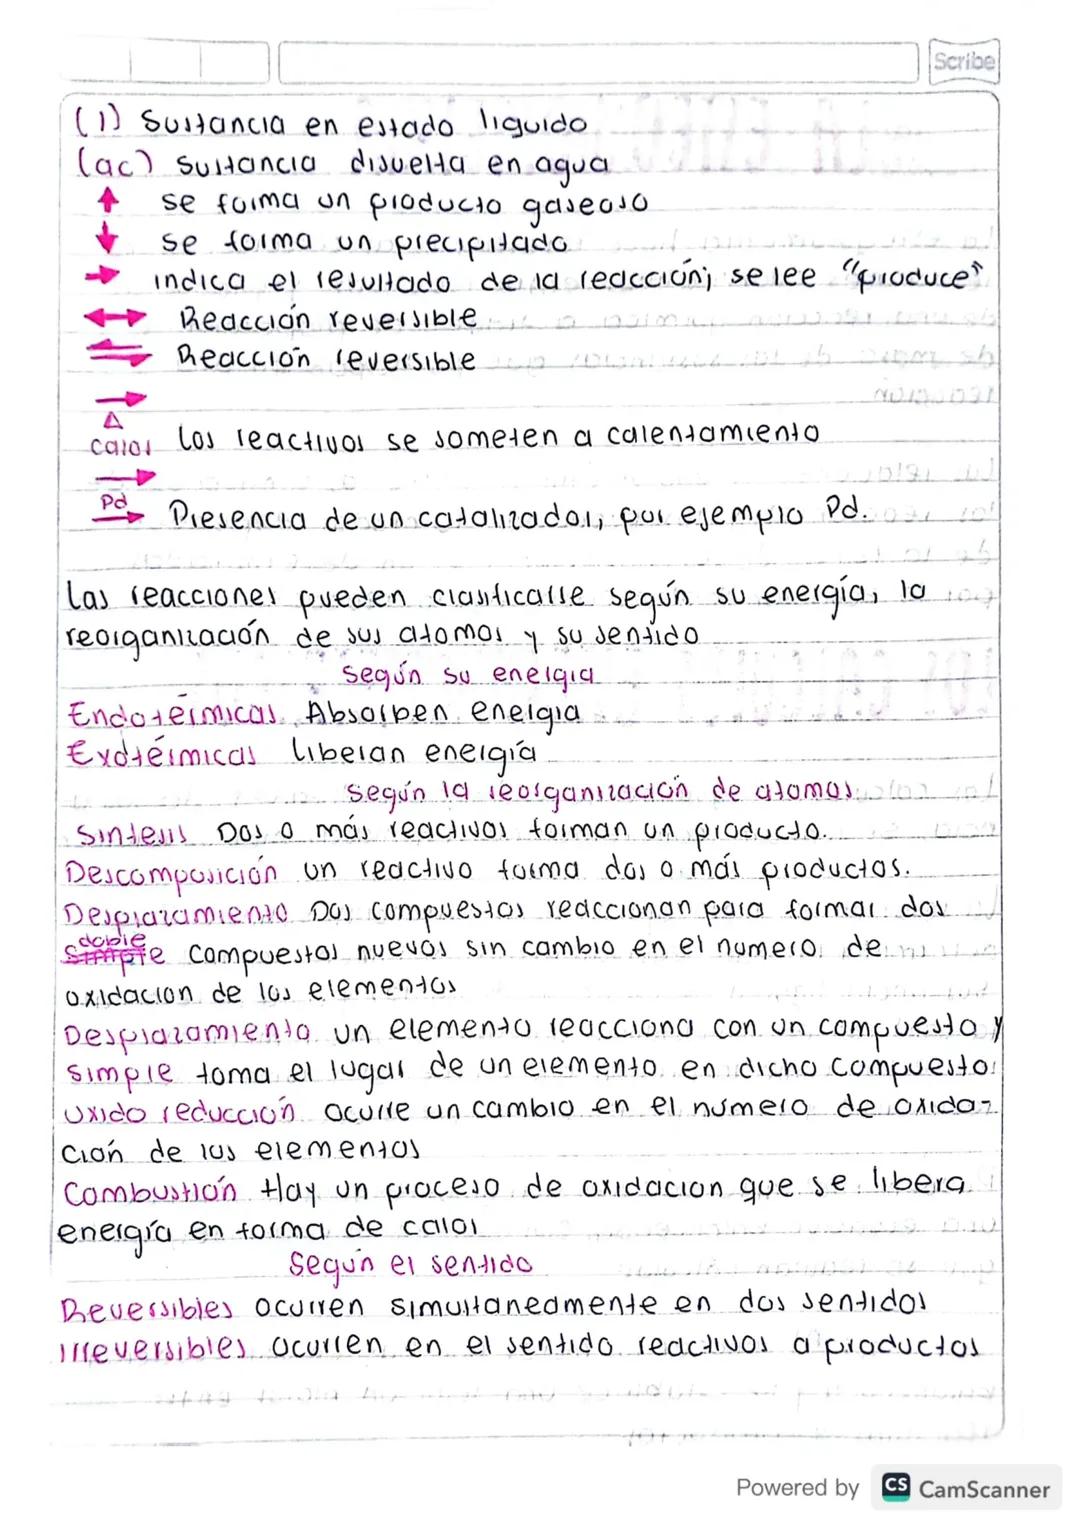 Scribe
(l) Sustancia en estado liquido
(ac) Sustancia disuelta en agua
↑ se forma un producto gaseoso
↓ se forma un precipitado
→ indica el resultado de la reacción; se lee "produce"
↔ Reacción reversible
⇌ Reacción reversible
→
Δ
calor Los reactivos se someten a calentamiento
→
Pd
→ Presencia de un catalizador, por ejemplo Pd.
Las reacciones pueden clasificarse según su energía, la
reorganización de sus atomos y su sentido
Según su energia
Endotérmicas Absorben energia
Exotérmicas Liberan energía
Según la reorganización de atomos
Sintesis Dos o más reactivos forman un producto.
Descomposición un reactivo forma dos o más productos.
Desplazamiento Dos compuestos reaccionan para formar dos
doble
simple compuestos nuevos sin cambio en el numero de
oxidacion de los elementos
Desplazamiento un elemento reacciona con un compuesto y
simple toma el lugar de un elemento en dicho compuesto
Oxido reducción ocurre un cambio en el número de oxida-
ción de los elementos
Combustión Hay un proceso de oxidacion que se libera
energía en forma de calor
Según el sentido
Reversibles ocurren simultaneamente en dos sentidos
irreversibles ocurren en el sentido reactivos a productos
Powered by CS CamScanner